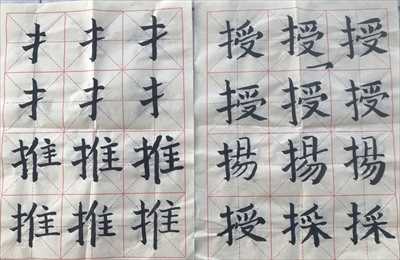 扌扌扌
扌扌扌
推推推
推推推
授授授
授授授
揚揚揚
授採採